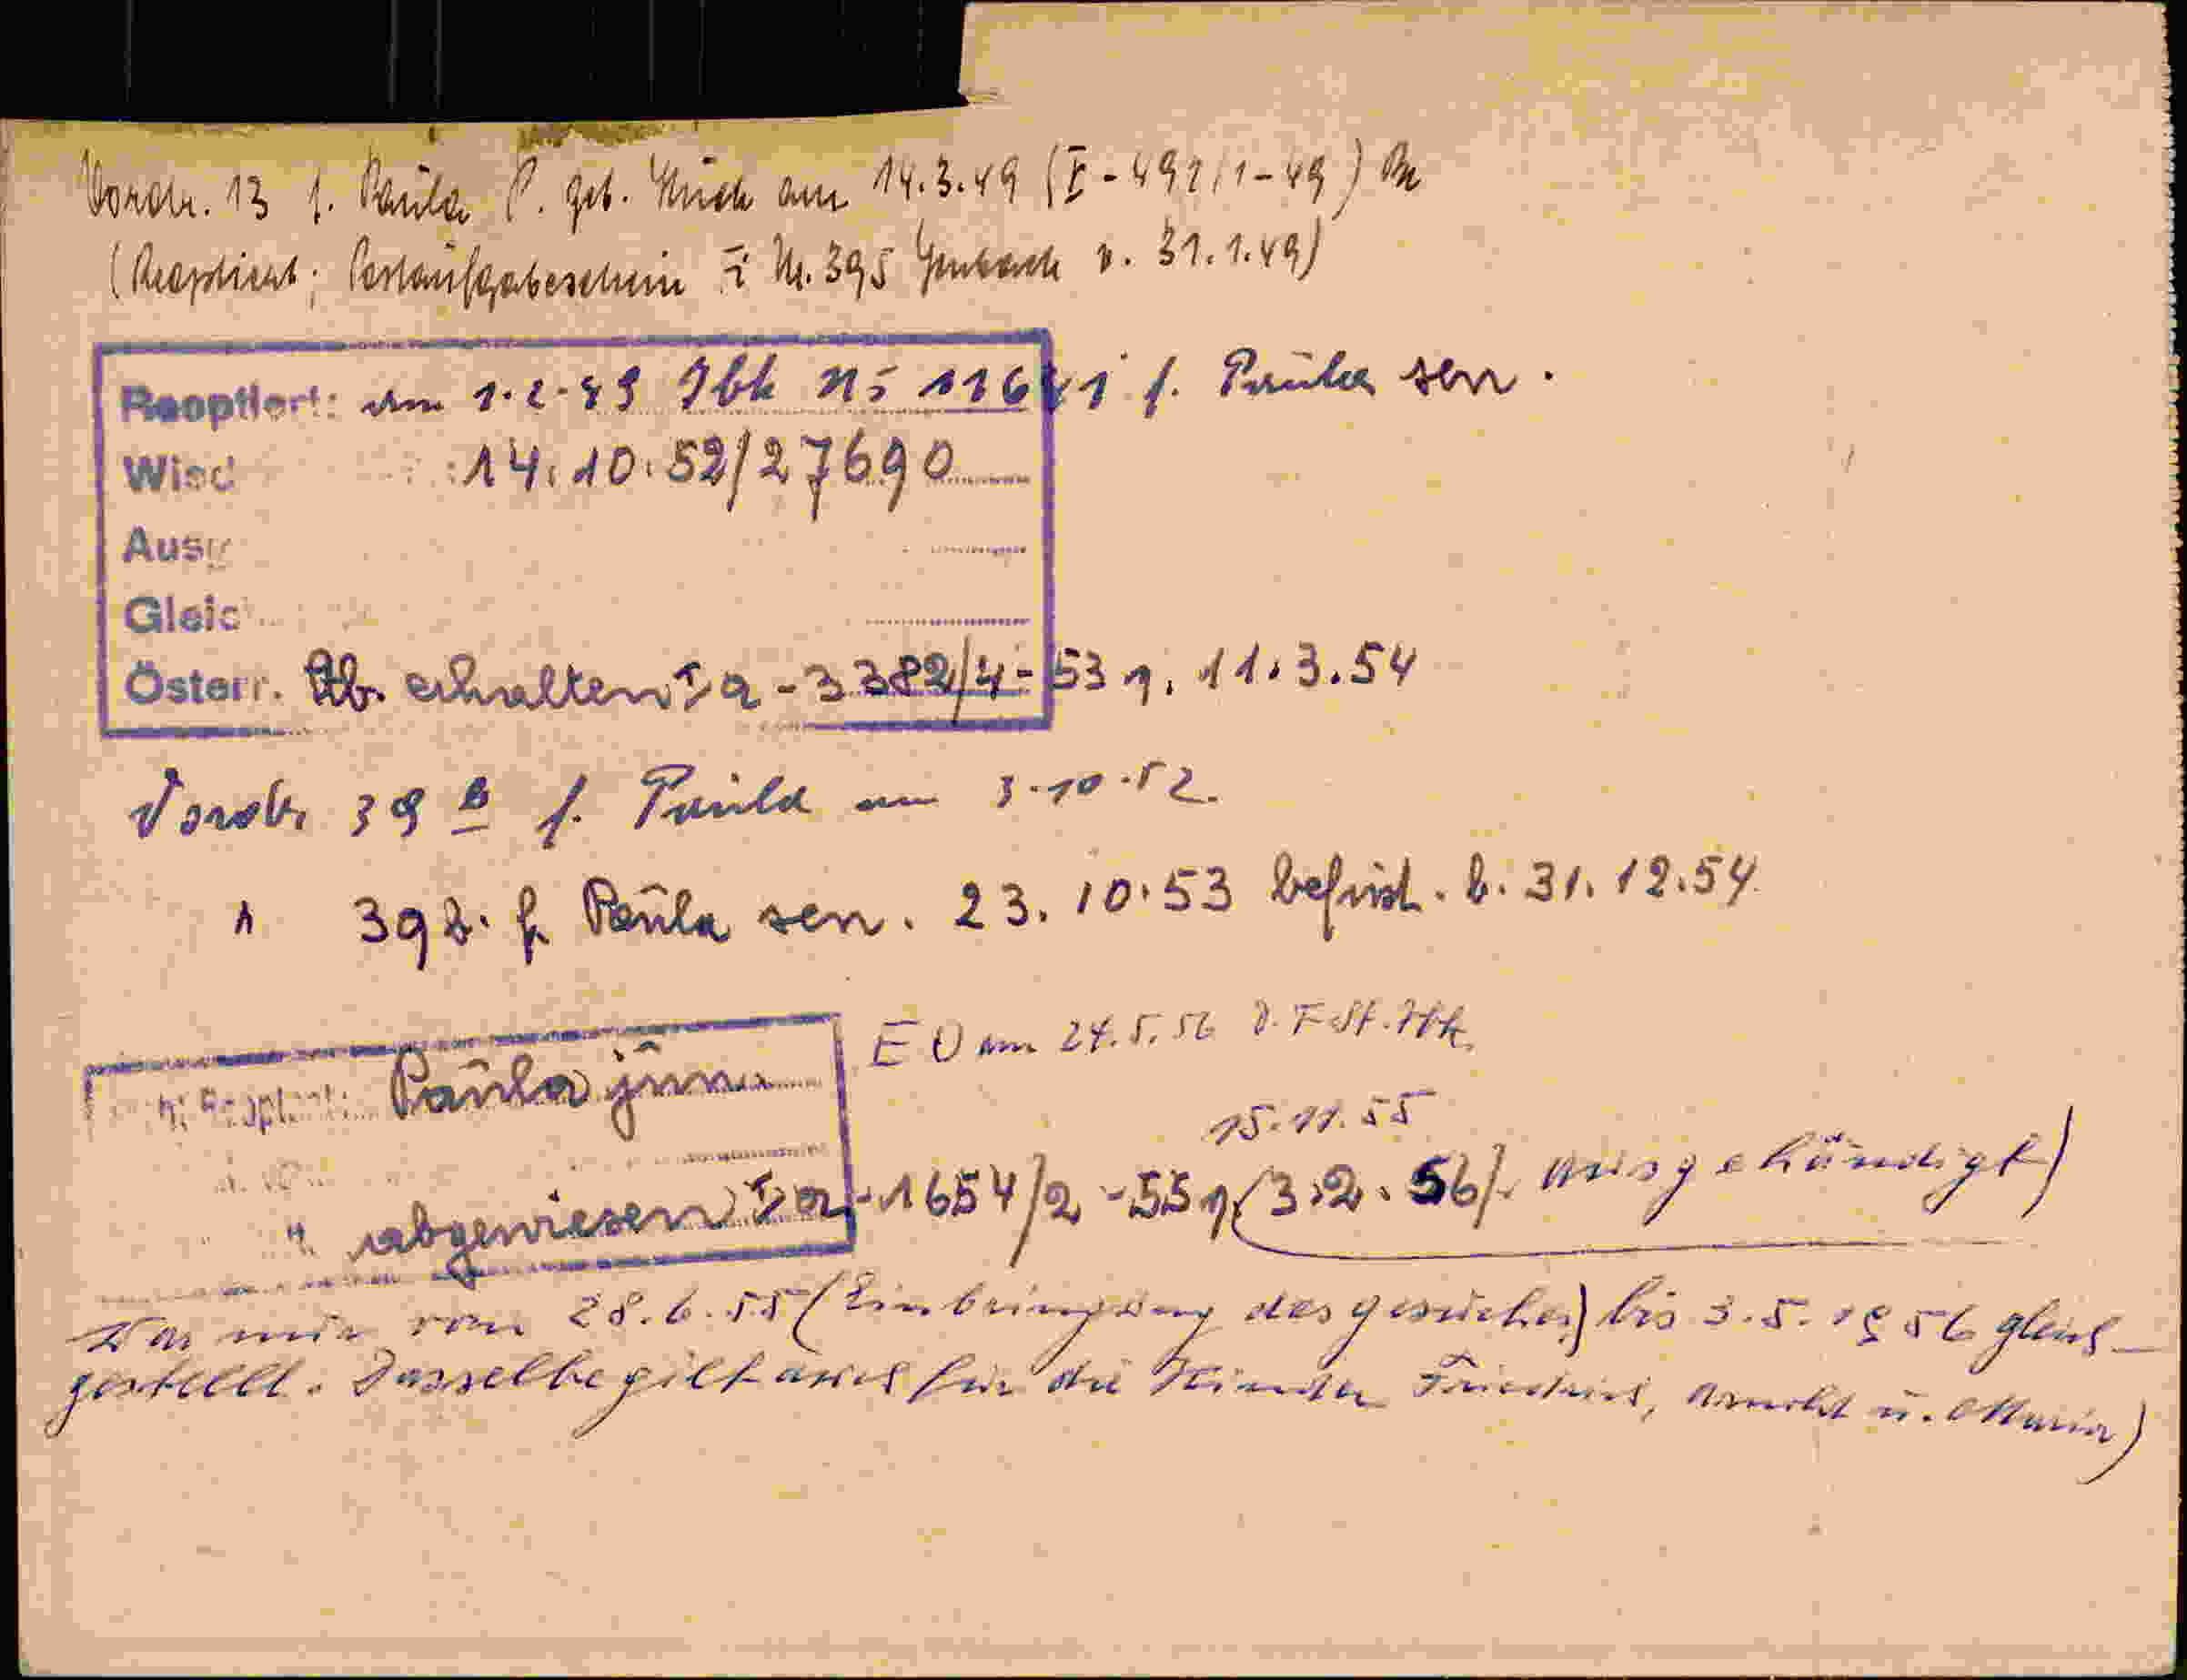 Vordr. 13 f. Paula P. geb. am 14.3.49 (I-492/1-49)
(Reoptiert; Postaufgabeschein Nr. 395 Jenbach v. 31.1.49)
Reoptiert: am 1.2.49 Ibk No 11641 f. Paula sen.
Wied 14.10.52/27690
Ausg
Gleic
Österr. Stb. erhalten Ia-3382/4-53 11.3.54
Vordr 39 b f. Paula am 3.10.52.
" 39 b. f. Paula sen. 23.10.53 befrist. b. 31.12.54
EO am 24.5.56 d. F.St. Ibk.
Paula jun.
15.11.55
" abgewiesen Ia-1654/2-55 (3.2.56 ausgehändigt)
War nur vom 28.6.55 (Einbringung des Gesuches) bis 3.5.1956 gleich-
gestellt. Dasselbe gilt auch für die Kinder Friedrich, Arnold u. Maria)